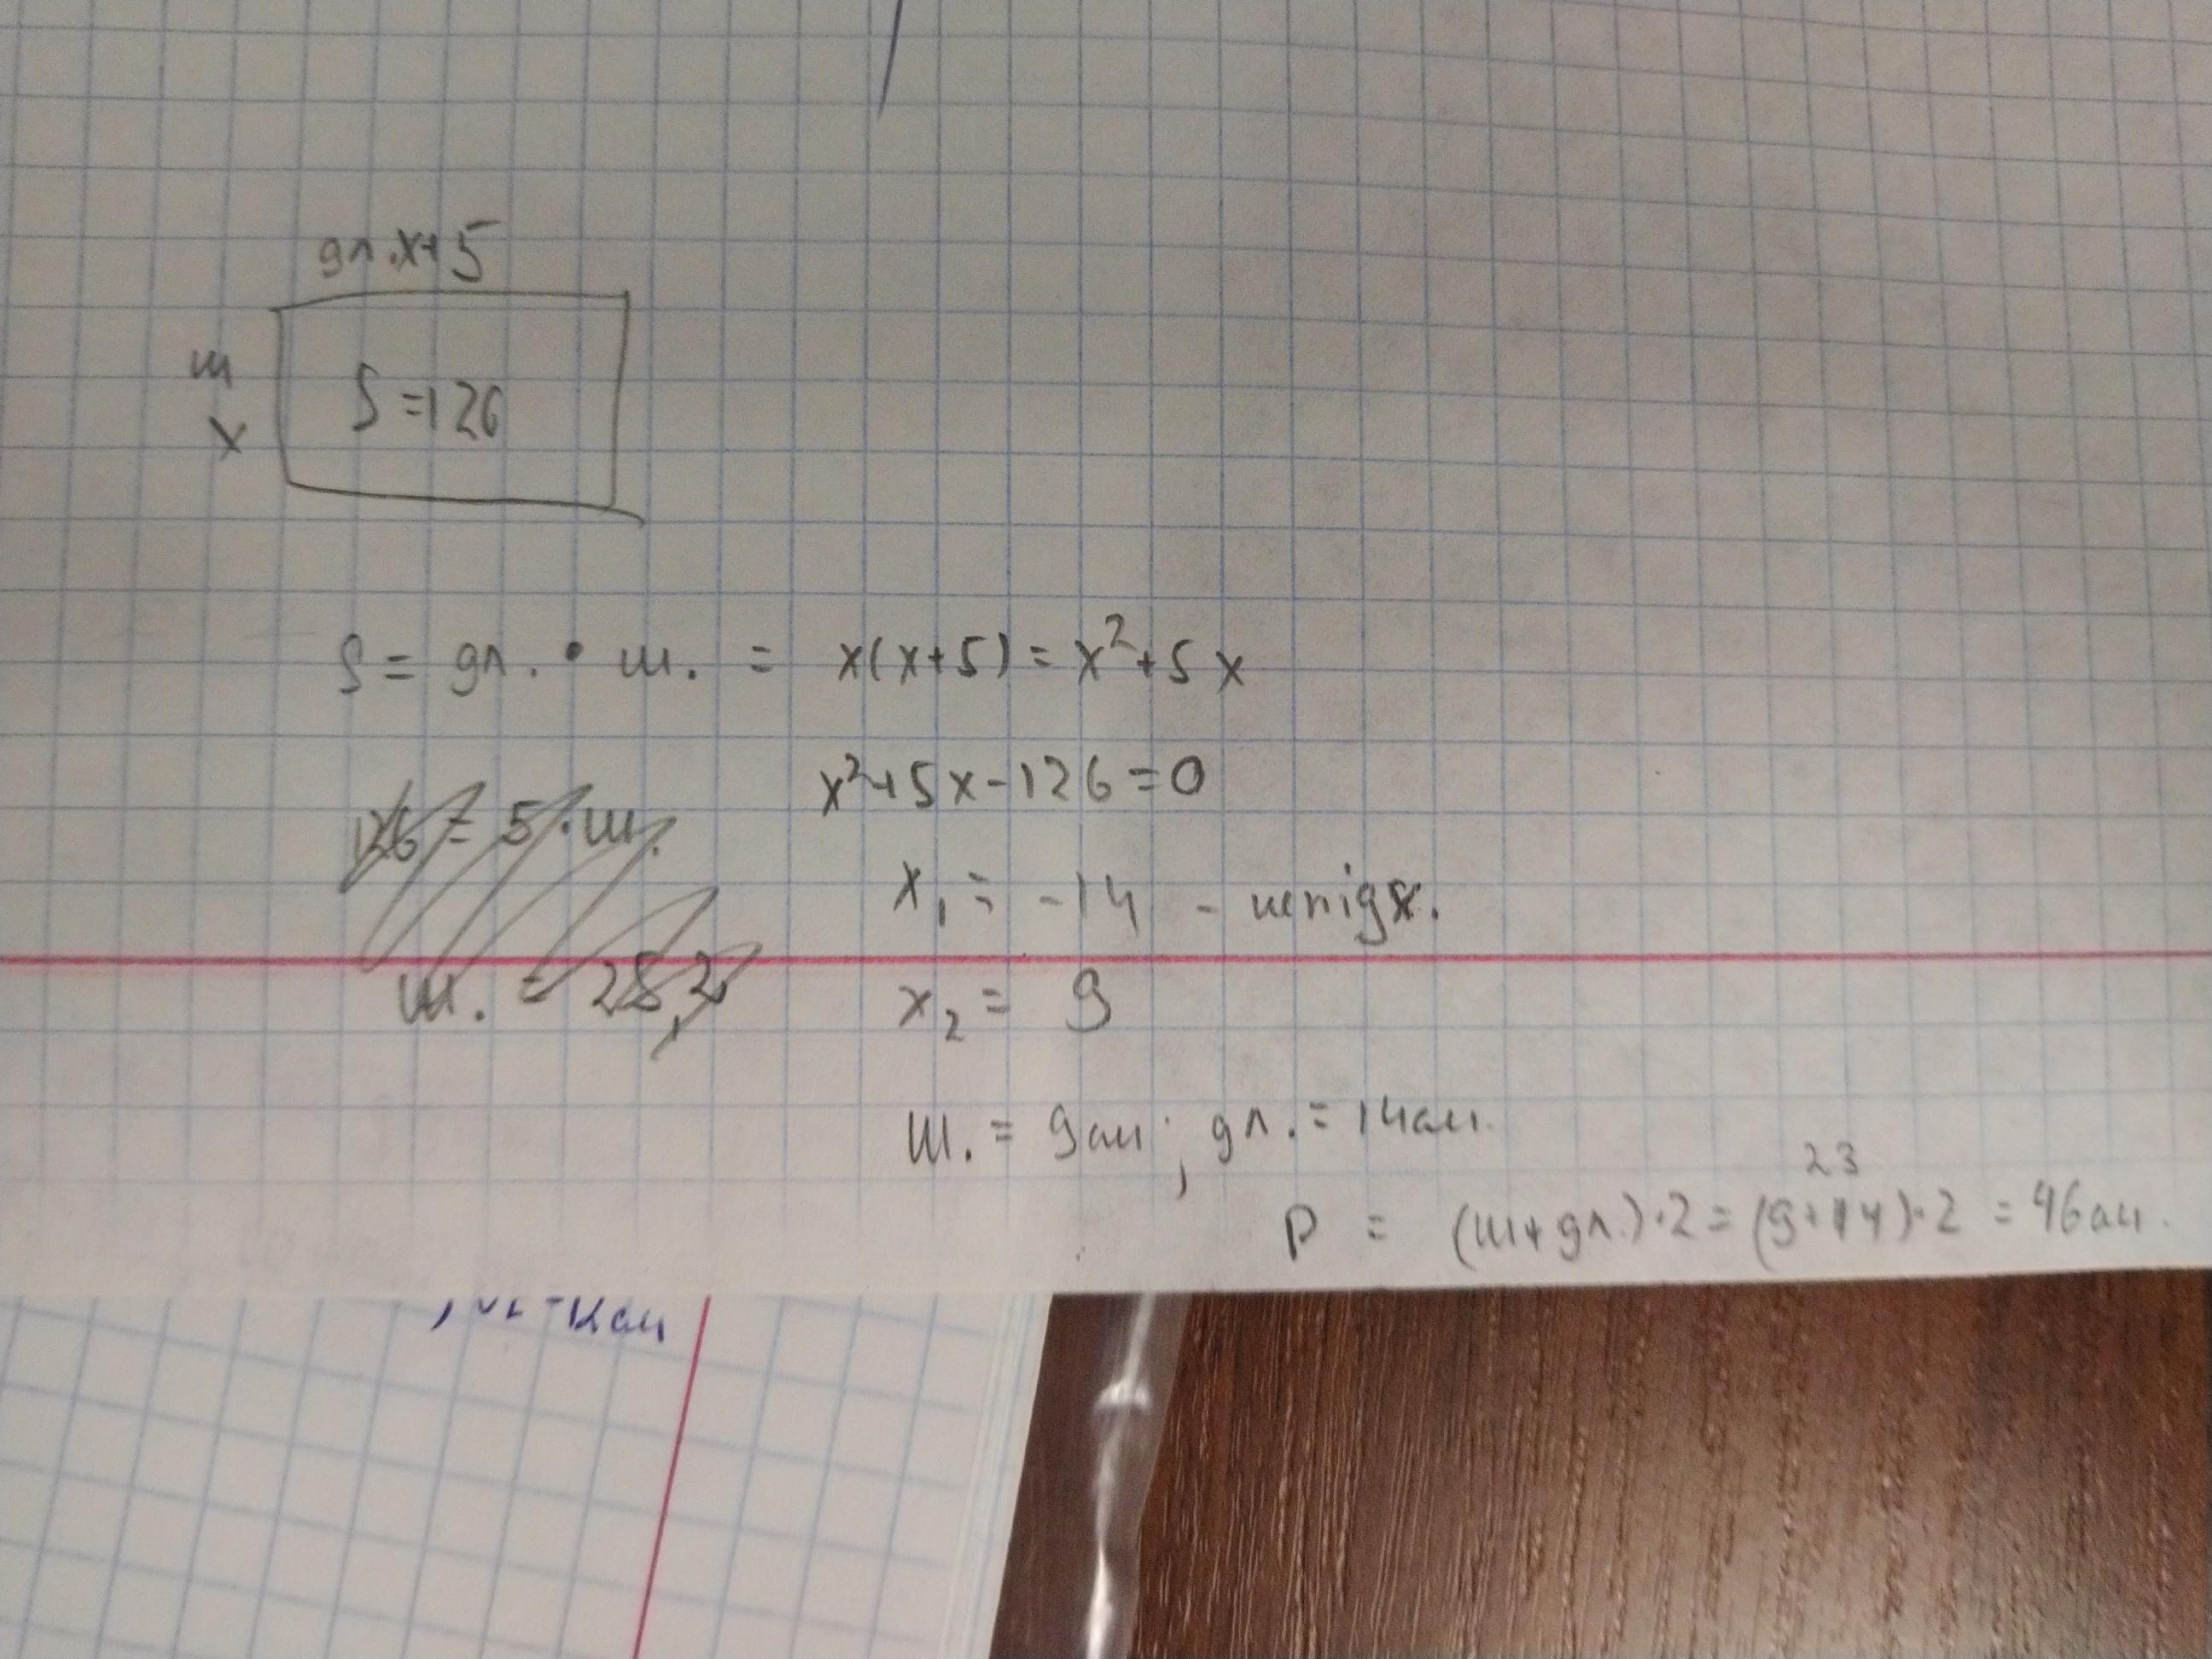 дл. x+5
ш
x
S=126
S = дл. • ш. = x(x+5) = x²+5x
x²+5x-126=0
126 = 5·ш.
x₁ = -14 - непідх.
ш. = 25,2
x₂ = 9
Ш. = 9см; дл. = 14см.
23
P = (ш+дл.)·2 = (9+14)·2 = 46см.